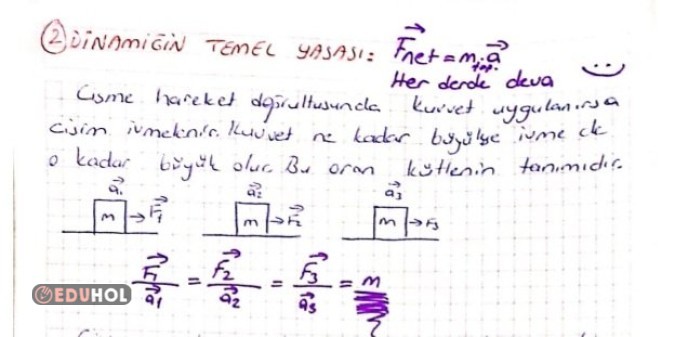 ② DİNAMİĞİN TEMEL YASASI: F⃗net = mtop. a⃗
Her derde deva
Cisme hareket doğrultusunda kuvvet uygulanırsa
cisim ivmelenir. Kuvvet ne kadar büyükse ivme de
o kadar büyük olur. Bu oran kütlenin tanımıdır.
a⃗1 a⃗2 a⃗3
m F⃗1 m F⃗2 m F3
F⃗1/a⃗1 = F⃗2/a⃗2 = F⃗3/a⃗3 = m
EDUHOL